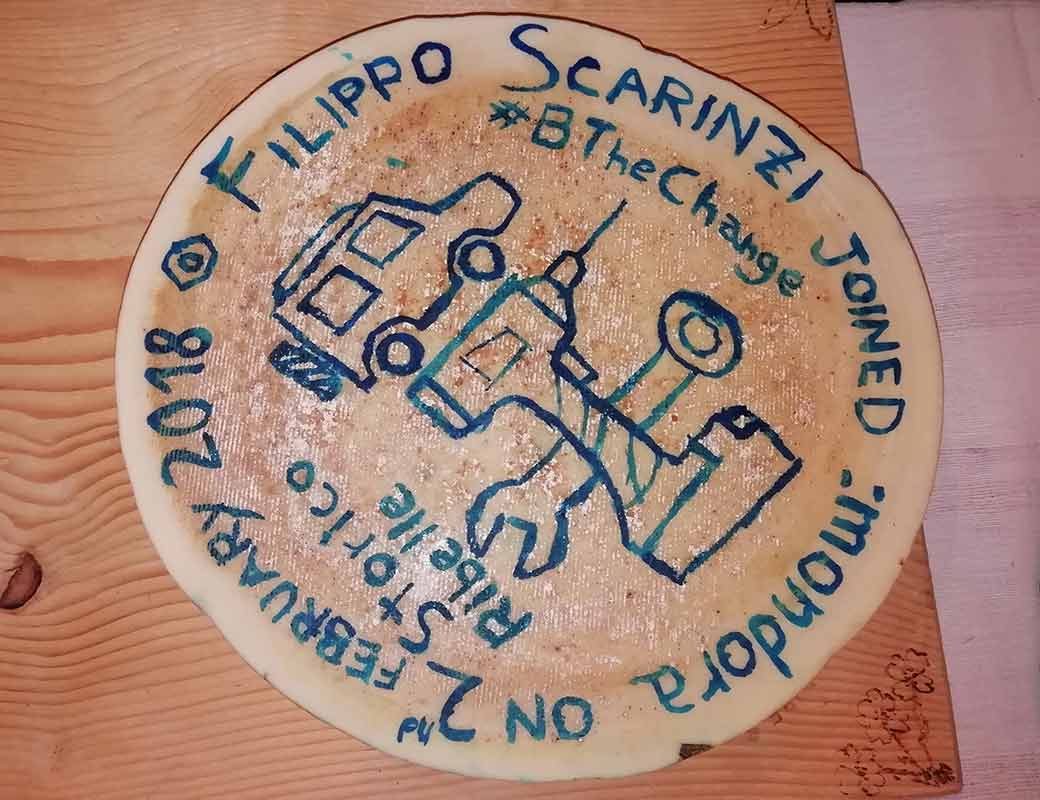 FILIPPO SCARINZI JOINED :mondora ON 2nd FEBRUARY 2018
#BTheChange
Storico
Ribelle